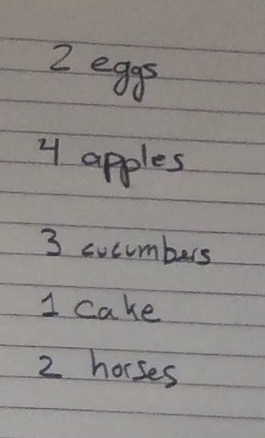 2 eggs
4 apples
3 cucumbers
1 cake
2 horses